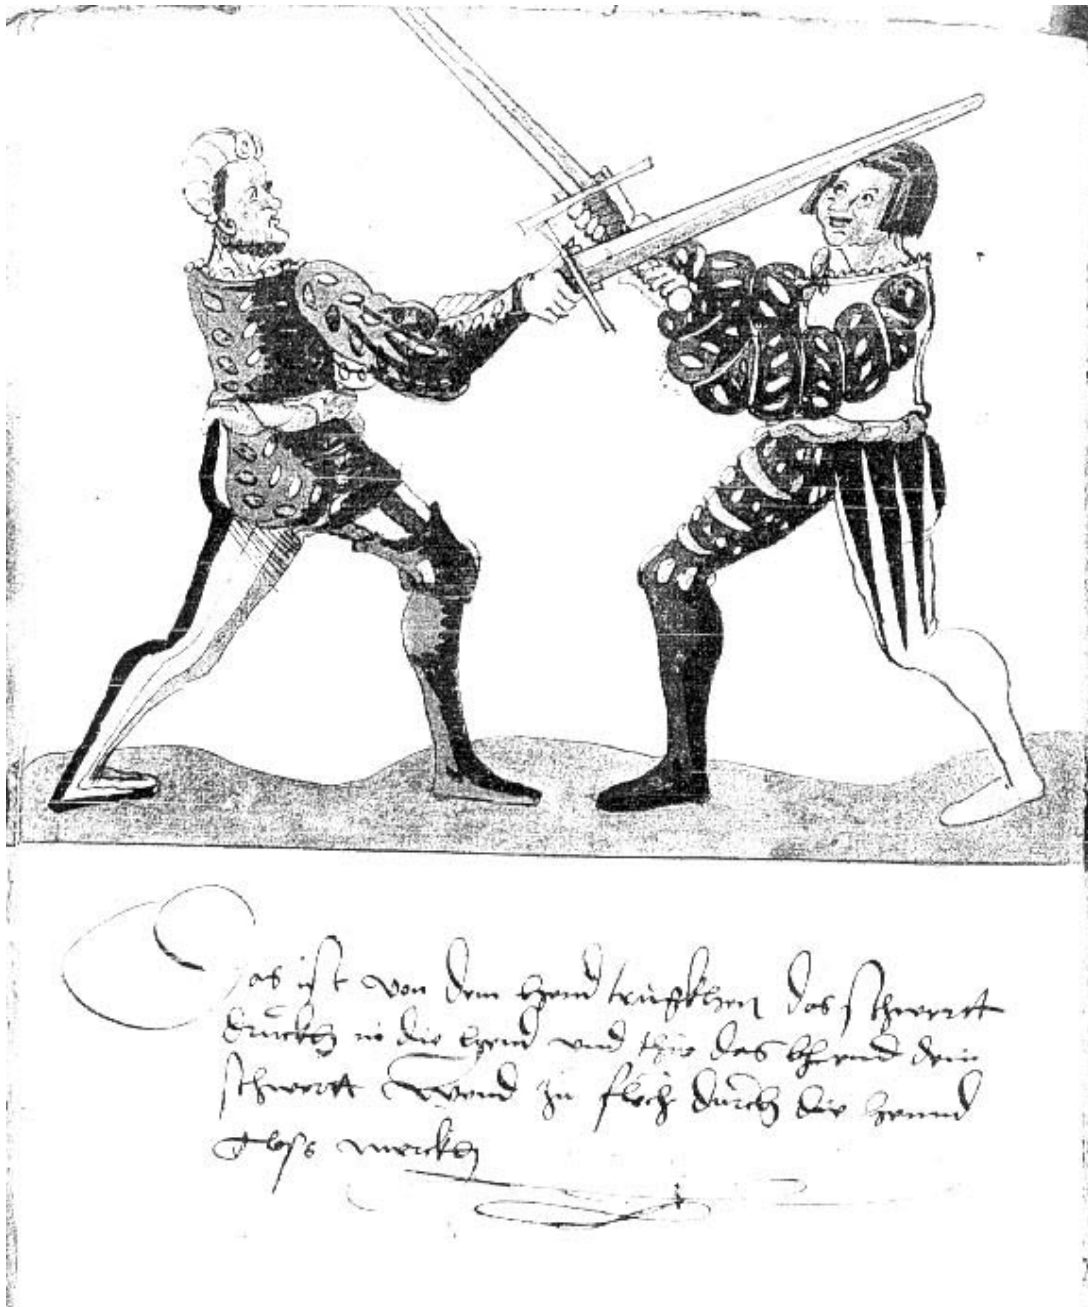 Das ist von dem hend truckhen das schwertt
druckh in die hend und thue das bhend dein
schwertt Wend zu flech durch die hennd
gloss merckh